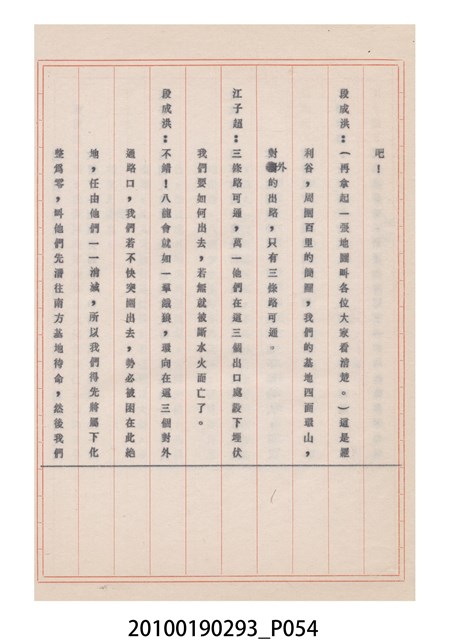 吧!
段成洪:(再拿起一張地圖叫各位大家看清楚。)這是
利谷,周圍百里的簡圖,我們的基地四面環山,
對外的出路,只有三條路可通。
江子超:三條路可通,萬一他們在這三個出口處設下埋伏
我們要如何出去,若無就被斷水火而亡了。
段成洪:不錯!八龍會就如一羣餓狼,環向在這三個對外
通路口,我們若不快突圍出去,勢必被困在此絕
地,任由他們一一消滅,所以我們得先將屬下化
整爲零,叫他們先潛往南方基地待命,然後我們
20100190293_P054